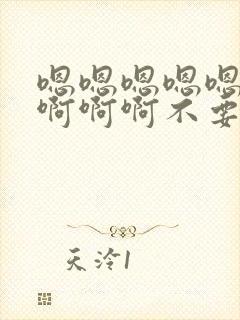 嗯嗯嗯嗯嗯
啊啊啊不要
天泠1